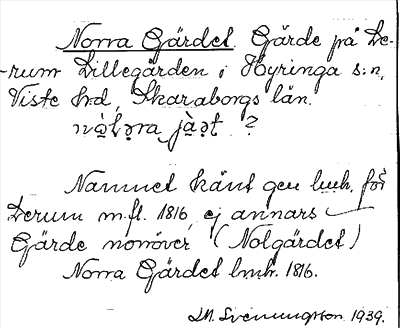 Norra Gärdet. Gärde på De-
rum Lillegården i Hyringa s:n,
Viste hd, Skaraborgs län.
?
Namnet känt gen lmh. för
Derum m.fl. 1816, ej annars
Gärde norröver, (Nolgärdet)
Norra Gärdet lmh. 1816.
M. Svenungsson 1939.